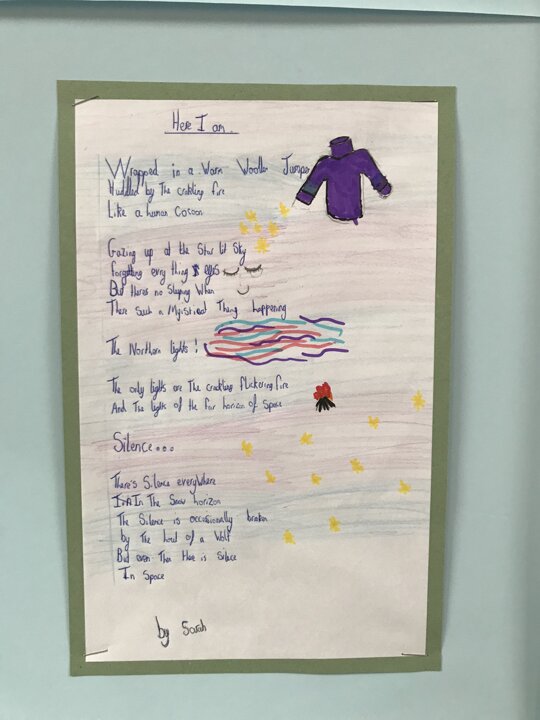 Here I am.
Wrapped in a Warm Woollen Jumper
Huddled by The crackling fire
Like a human Cocoon
Gazing up at the Star lit Sky
Forgetting every thing else
But theres no Sleeping When
There Such a Mystical Thing happening
The Northern lights!
The only lights are The crackling flickering fire
And The lights of the far horizon of Space
Silence...
There's Silence everyWhere
In The Snow horizon
The Silence is occasionally broken
by The howl of a Wolf
But even Then there is Silence
In Space
by Sarah